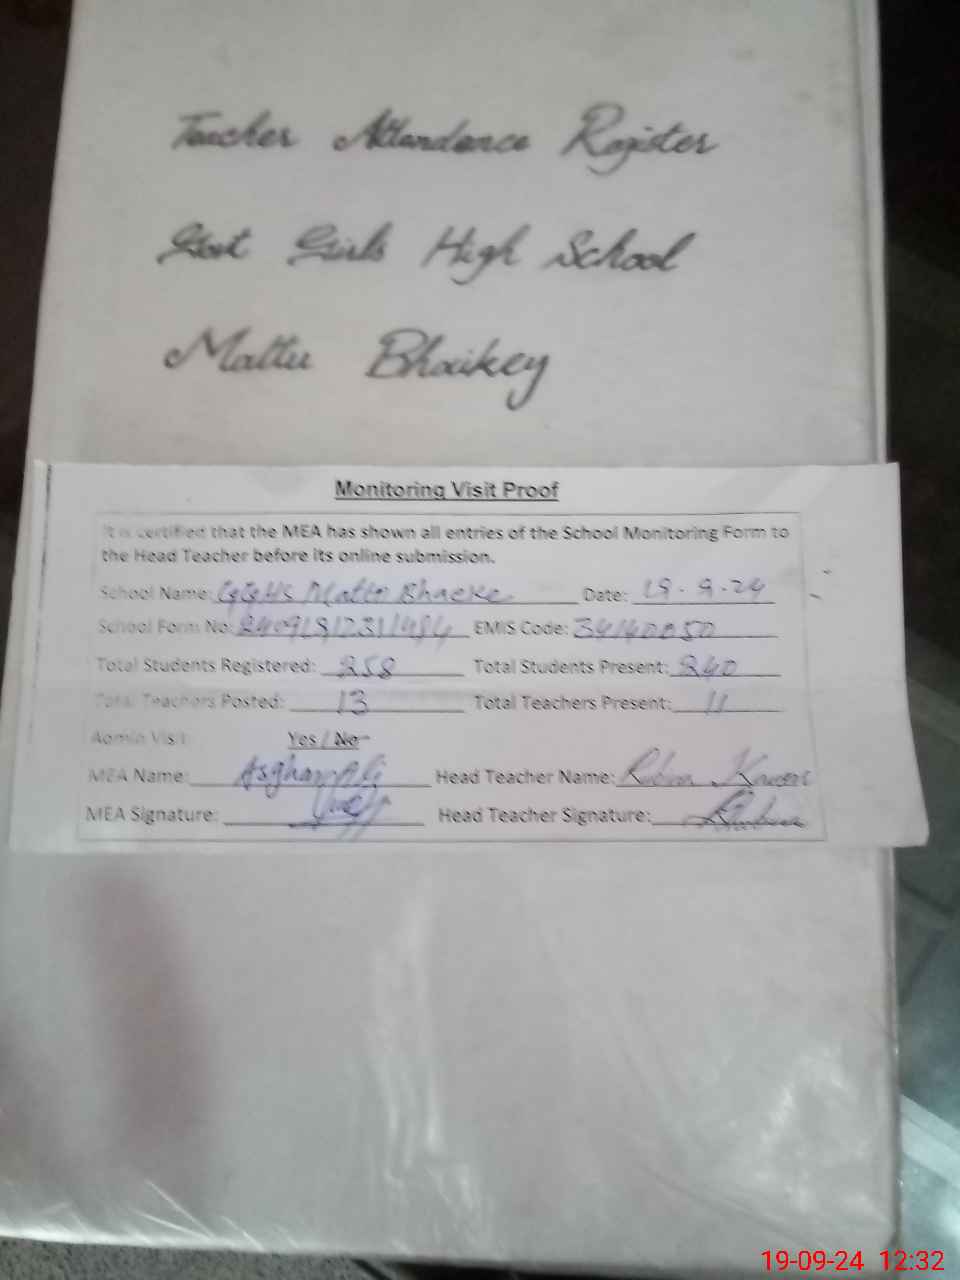 Teacher Attendance Register
Govt Girls High School
Mattu Bhaikey
Monitoring Visit Proof
It is certified that the MEA has shown all entries of the School Monitoring Form to
the Head Teacher before its online submission.
School Name: GGHS Matto Bhaeke Date: 19-9-24
School Form No: EMIS Code: 34140050
Total Students Registered: 258 Total Students Present: 240
Total Teachers Posted: 13 Total Teachers Present: 11
Admin Visit: Yes / No
MEA Name: Asghar Ali Head Teacher Name: Rubina Kausar
MEA Signature: Head Teacher Signature: Rubina
19-09-24 12:32